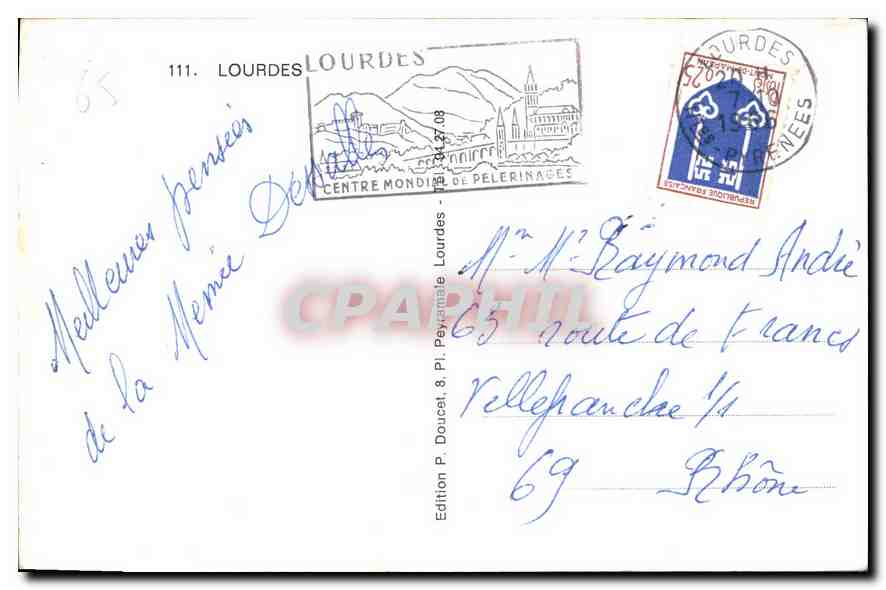 65
111. LOURDES
LOURDES
CENTRE MONDIAL DE PELERINAGES
LOURDES
20 H
7-10
1966
HTES-PYRENEES
0,25
MONT-DE-MARSAN
REPUBLIQUE FRANCAISE
Meilleures pensées
de la Mémée
Edition P. Doucet, 8, Pl. Peyramale Lourdes - Tél. 94.27.08
CPAPHIL
Mr Me Raymond André
65 route de Francs
Villefranche s/s
69 Rhône